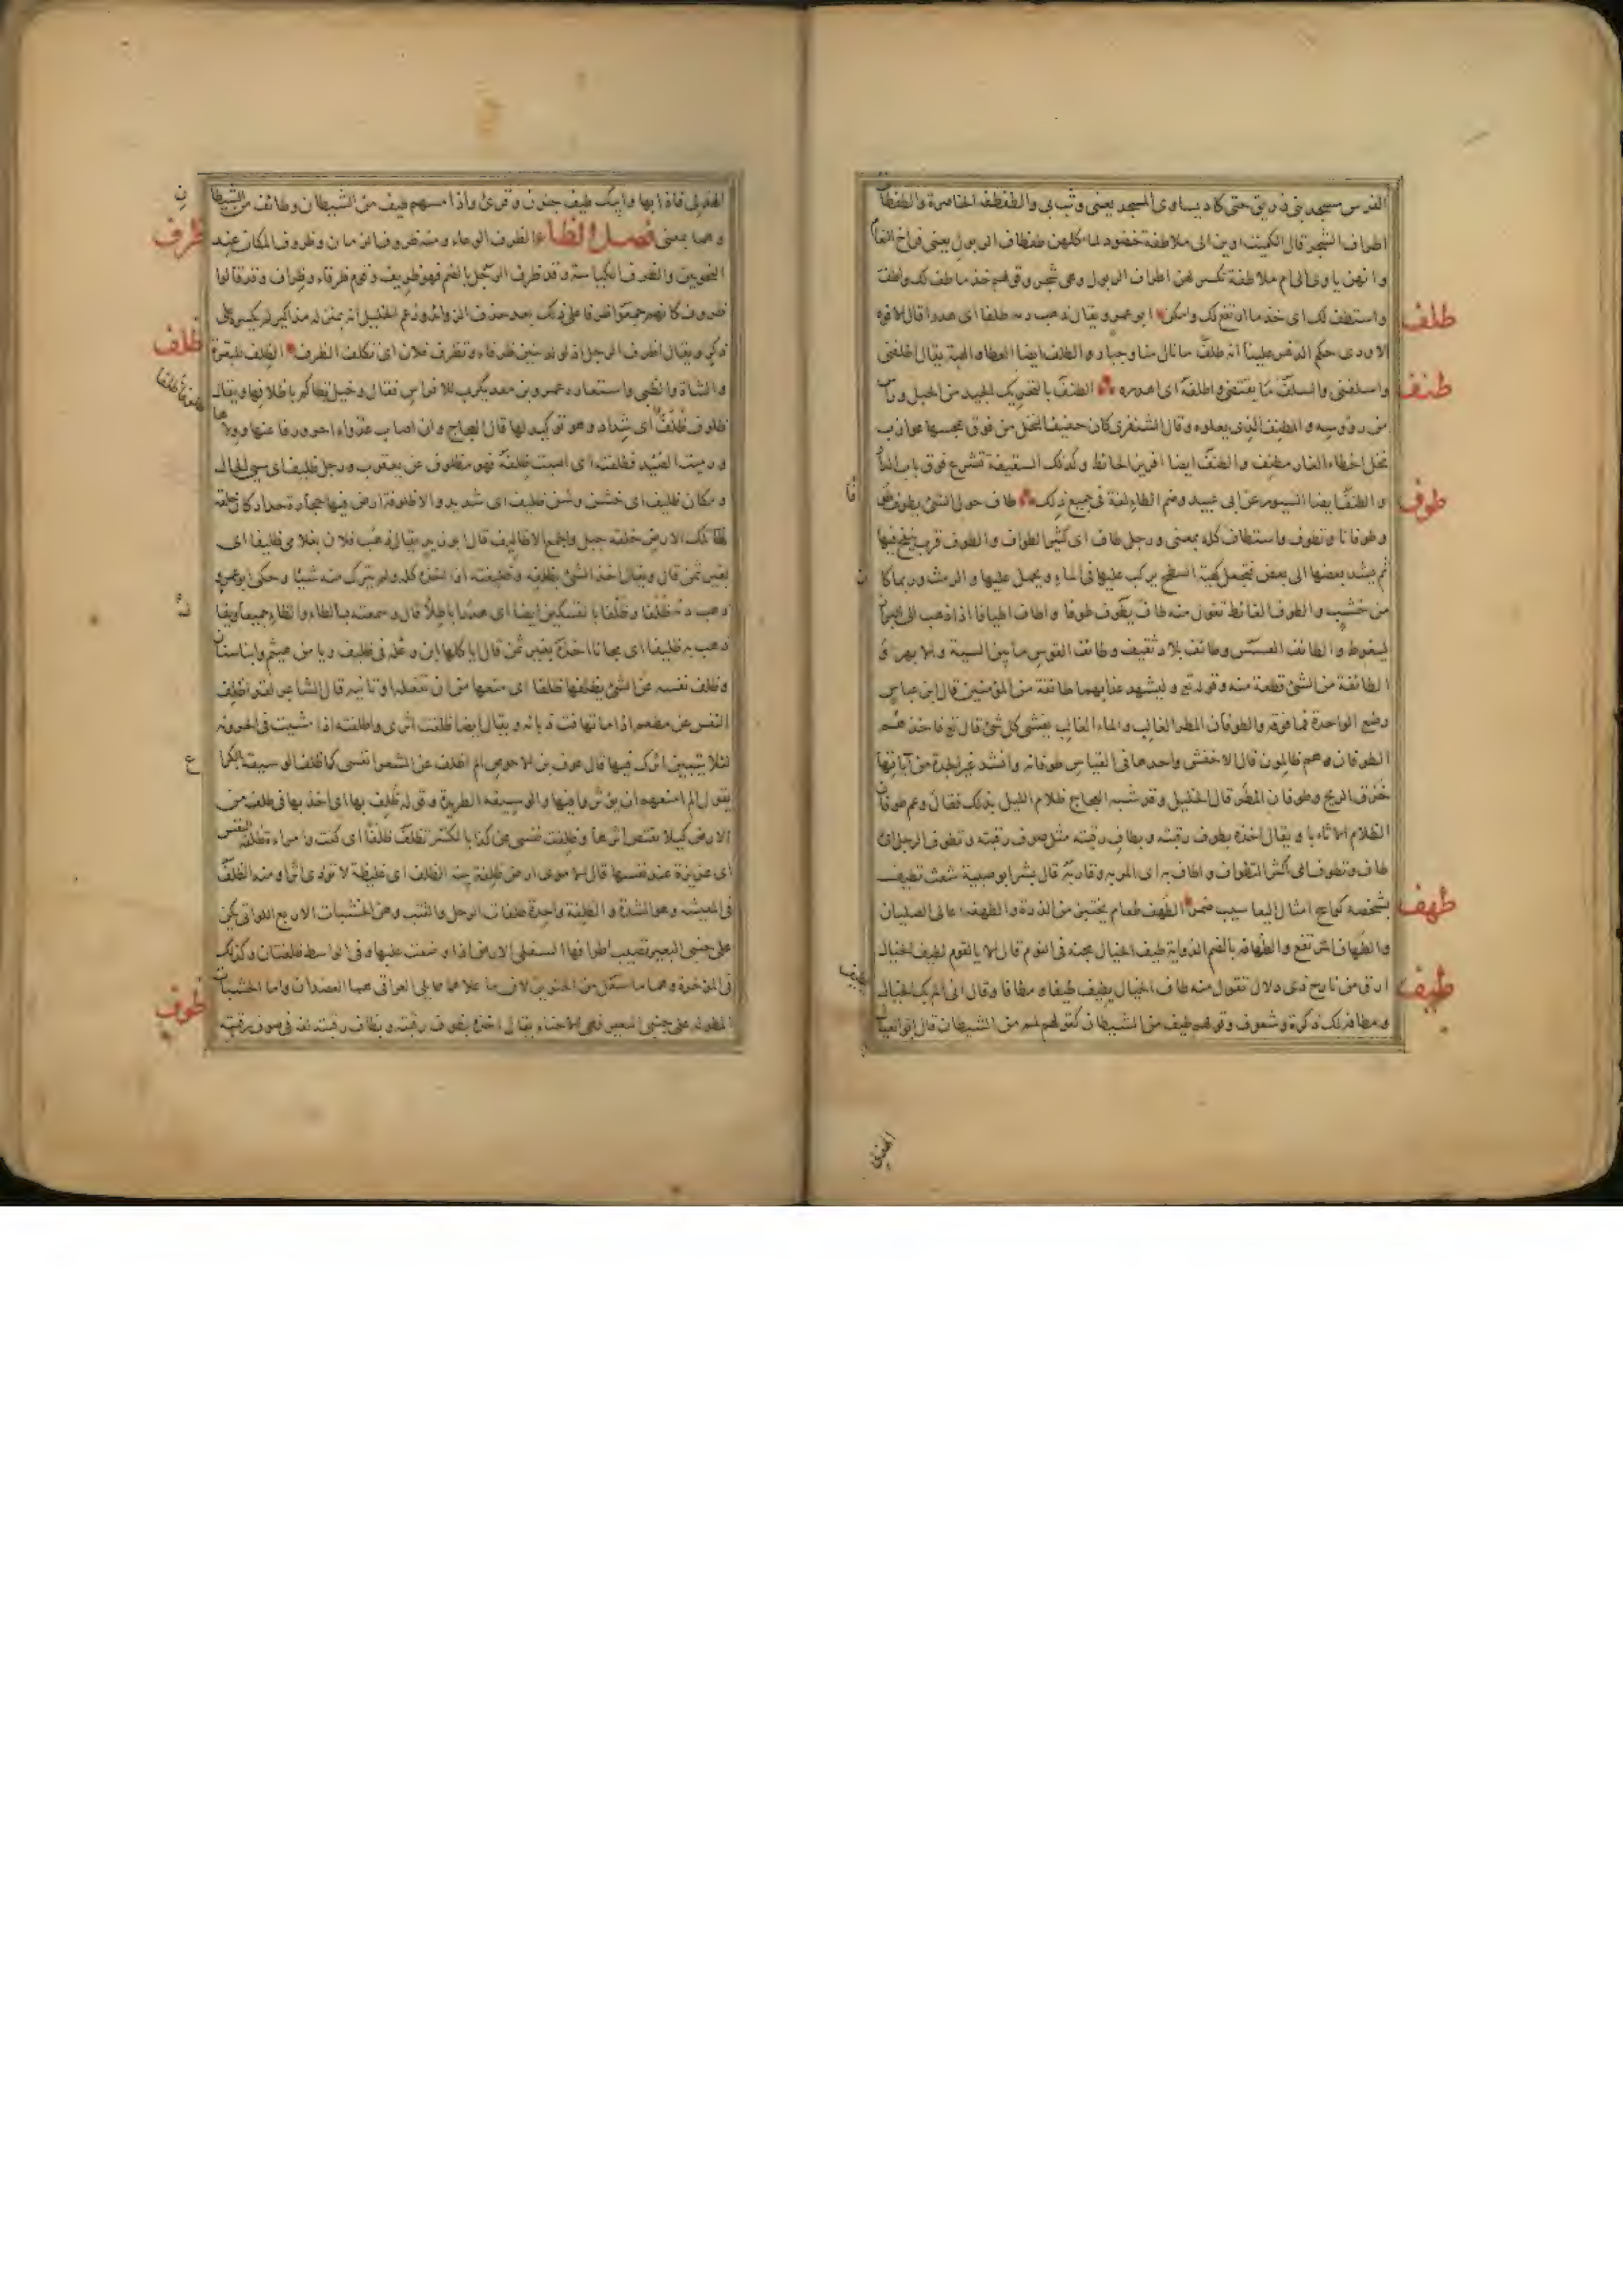 الفرس مسجد بنى زريق حتى كاد يساوى المسجد يعنى وثب بى والطفطفة الخاصرة والطفطاف
اطراف الشجر قال الكميت اوين الى ملاطفة خضود لما كلهن طفطاف الربول يعنى فراخ النعام
وانهن ياوى الى ام ملاطفة تكسر لهن اطراف الربول وهى شجر وقولهم خذ ما طف لك واطف
طلف
واستطف لك اى خذ ما ارتفع لك وامكن ابو عمرو يقال ذهب دمه طلفا اى هدرا قال الافوه
الاودى حكم الدهر علينا انه طلف ما نال منا وجبار والطلف ايضا العطاء والهبة يقال اطلفنى
طنف
واسلفنى والسلف ما يقتضى واطلفه اى اهدره الطنف بالتحريك الحيد من الجبل وراس
من رؤوسه والمطنف الذى يعلوه وقال الشنفرى كان حفيف النحل من فوق عجسها عوازب
نحل اخطاء الغار مطنف والطنف ايضا افريز الحائط وكذلك السقيفة تشرع فوق باب الدار
طوف
والطنف ايضا السيور عن ابى عبيد وضم الطاء لغة فى جميع ذلك طاف حول الشئ يطوف طوفا
وطوفانا وتطوف واستطاف كله بمعنى ورجل طاف اى كثير الطواف والطوف قرب ينفخ فيها
ثم يشد بعضها الى بعض فتجعل كهيئة السطح يركب عليها فى الماء ويحمل عليها والرمث وربما كان
من خشب والطوف الغائط تقول منه طاف يطوف طوفا واطاف اطيافا اذا ذهب الى البراز
ليتغوط والطائف العسس وطائف بلاد ثقيف وطائف القوس ما بين السية والابهر و
الطائفة من الشئ قطعة منه وقوله تع وليشهد عذابهما طائفة من المؤمنين قال ابن عباس
رضع الواحدة فما فوقه والطوفان المطر الغالب والماء الغالب يغشى كل شئ قال تع فاخذهم
الطوفان وهم ظالمون قال الاخفش واحدها فى القياس طوفانه وانشد غير الجدة من آياتها
خرق الريح وطوفان المطر قال الخليل وقد شبه العجاج ظلام الليل بذلك فقال وعم طوفان
الظلام الاثابا ويقال اخذه بطوف رقبته وبطاف رقبته مثل صوف رقبته وتطوف الرجل اى
طاف وتطوف اى اكثر التطواف واطاف به اى الم به وقاربه قال بشر ابو صبية شعث تطيف
طهف
بشخصه كوالح امثال اليعاسيب ضمر الطهف طعام يختبز من الذرة والطهفة اعالى الصليان
والطهاف المرتفع والطهافة بالضم الذواية طيف الخيال مجيئه فى النوم قال الا يا لقوم لطيف الخيال
طيف
ارق من نازح ذى دلال تقول منه طاف الخيال يطيف طيفا ومطافا وقال انى الم بك الخيال
ومطافه لك ذكرة وشعوف وقولهم طيف من الشيطان كقولهم لمم من الشيطان قال ابو العيال
الهذلى فاذا بها وابيك طيف جنون وقرئ واذا مسهم طيف من الشيطان وطائف من الشيطان
ظرف
وهما بمعنى فصل الظا الظرف الوعاء ومنه ظروف الزمان وظروف المكان عند
النحويين والظرف الكياسة وقد ظرف الرجل بالضم فهو ظريف وقوم ظرفاء وظراف وقد قالوا
ظروف كانهم جمعوا ظرفا على ذلك بعد حذف الزوائد وزعم الخليل انه بمنزلة مذاكير لم يكسر على
ظلف
ذكر ويقال اظرف الرجل اذا ولد بنين ظرفاء وتظرف فلان اى تكلف الظرف الظلف للبقرة
والشاة والظبى واستعاره عمرو بن معديكرب للافراس فقال وخيل تطاكم باظلافها ويقال
ظلوف ظلف اى شداد وهو توكيد لها قال العجاج وان اصاب عدواء احرورفا عنها وولاها
ورميت الصيد فظلفته اى اصبت ظلفه فهو مظلوف عن يعقوب ورجل ظليف اى سئ الحال
ومكان ظليف اى خشن وشر ظليف اى شديد والاظلوفة ارض فيها حجارة حداد كان خلقة
تلك الارض خلقة جبل والجمع الاظاليف قال ابو زيد يقال ذهب فلان بغلامى ظليفا اى
بغير ثمن قال ويقال اخذ الشئ بظليفه وظليفته اذا اخذه كله ولم يترك منه شيئا وحكى ابو عمرو
ذهب دمه ظلفا وظلفا بالتسكين ايضا اى هدرا باطلا قال وسمعته بالطاء والظاء جميعا ويقال
ذهب به ظليفا اى مجانا اخذه بغير ثمن قال اياكلها ابن وعلة فى ظليف ويامن هيثم وابنا سنان
وظلف نفسه عن الشئ يظلفها ظلفا اى منعها من ان تفعله او تاتيه قال الشاعر لقد اظلف
النفس عن مطعم اذا ما تهافت ذبانه ويقال ايضا ظلفت اثرى واظلفته اذا مشيت فى الحزونة
لئلا يتبين اثرك فيها قال عوف بن الاحوص الم اظلف عن الشعراء نفسى كما ظلف الوسيقة بالكراع
يقول الم امنعهم ان يؤثروا فيها والوسيقة الطريدة وقوله ظلف بها اى اخذ بها فى ظلف من
الارض كيلا يقتص اثرها وظلفت نفسى عن كذا بالكسر تظلف ظلفا اى كفت وامراءة ظلفة النفس
اى عزيزة عند نفسها قال الاموى ارض ظلفة بينة الظلف اى غليظة لا تؤدى اثرا ومنه الظلف
فى المعيشة وهو الشدة والظلفة واحدة ظلفات الرحل والقتب وهن الخشبات الاربع اللواتى يكن
على جنبى البعير تصيب اطرافها السفلى الارض اذا وضعت عليها وفى الواسط ظلفتان وكذلك
فى المؤخرة وهما ما سفل من الحنوين لان ما علاهما مما يلى العراقى هما العضدان واما الخشبات
ظوف
المطولة على جنبى البعير فهى الاحناء يقال اخذه بظوف رقبته وبظاف رقبته لغة فى صوف رقبته